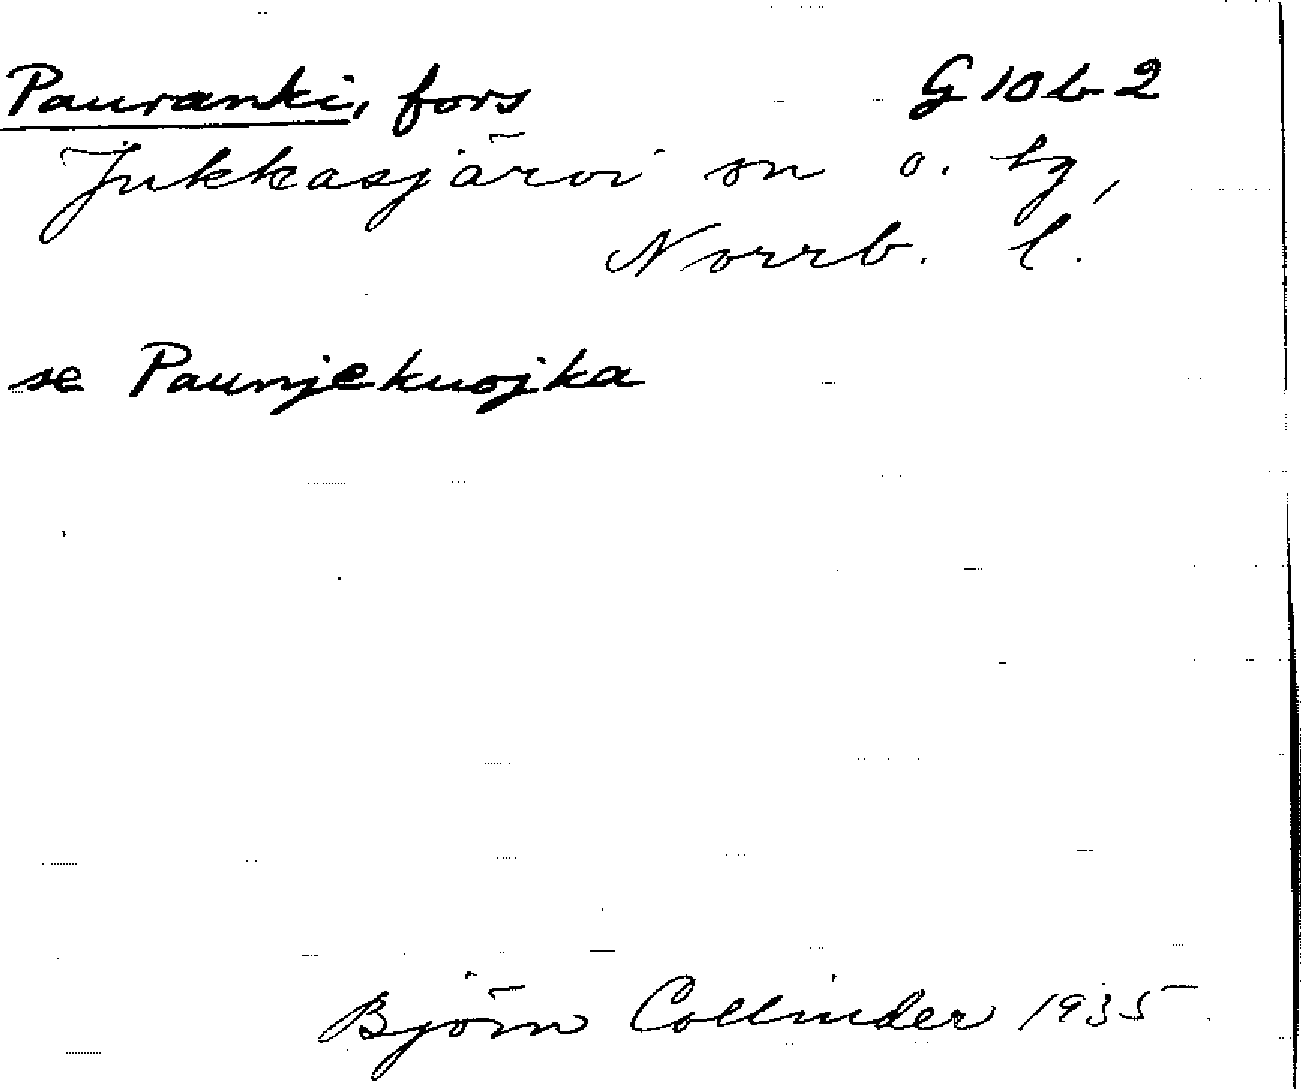 Pauranki, fors G 10 b 2
Jukkasjärvi sn o. tg,
Norrb. l.
se Paunjekuojka
Björn Collinder 1935